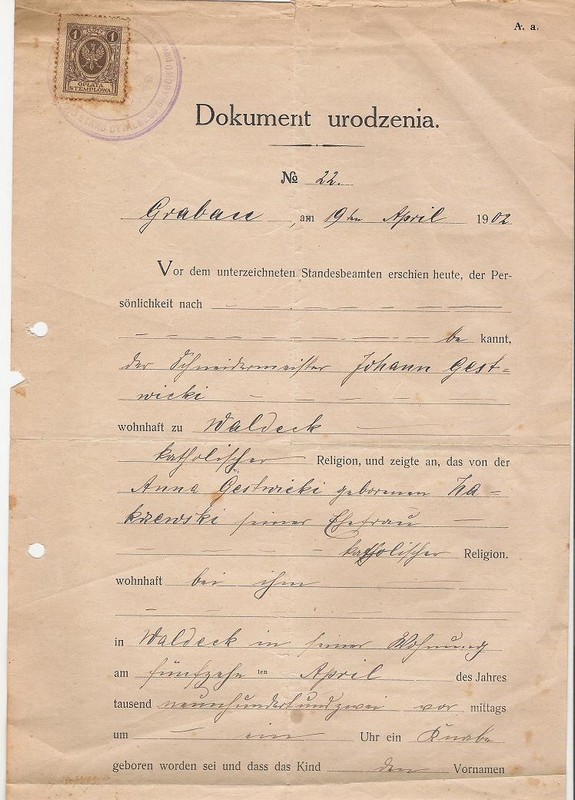 A. a.
1 1
OPŁATA
STEMPLOWA
Dokument urodzenia.
№ 22.
Grabau, am 19ten April 1902
Vor dem unterzeichneten Standesbeamten erschien heute, der Per-
sönlichkeit nach
be kannt,
der Schneidermeister Johann Gest-
wicki
wohnhaft zu Waldeck
katholischer Religion, und zeigte an, das von der
Anna Gestwicki geborenen Za-
krzewski seiner Ehefrau
katholischer Religion.
wohnhaft bei ihm
in Waldeck in seiner Wohnung
am fünfzehn ten April des Jahres
tausend neunhundertundzwei vor mittags
um ein Uhr ein Knabe
geboren worden sei und dass das Kind den Vornamen